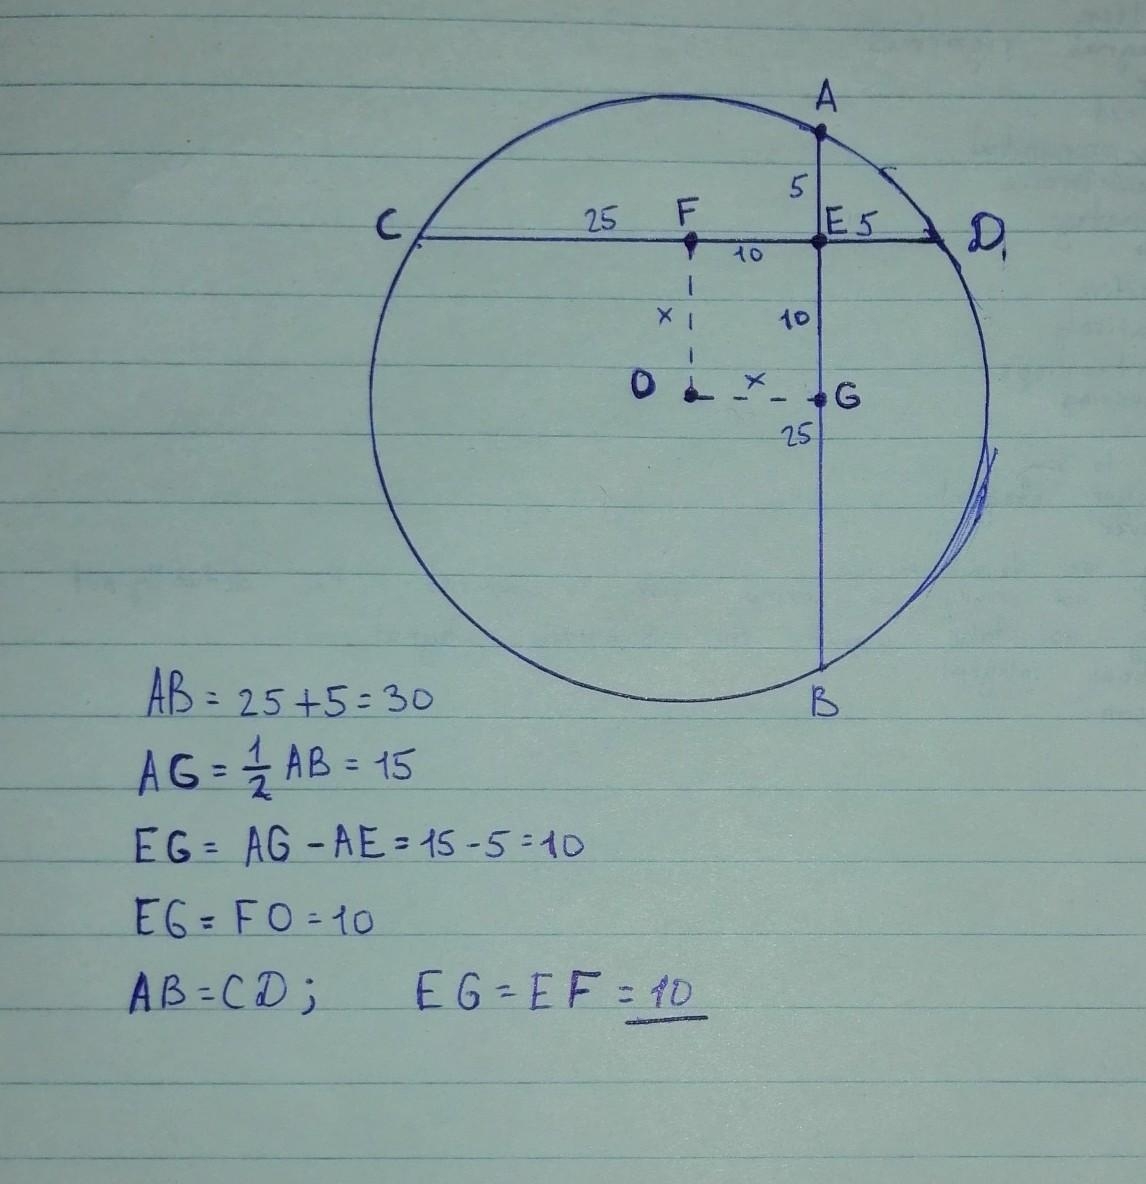 A
5
C 25 F E 5 D
10
x 10
O x G
25
B
AB = 25 + 5 = 30
AG = 1/2 AB = 15
EG = AG - AE = 15 - 5 = 10
EG = FO = 10
AB = CD; EG = EF = 10